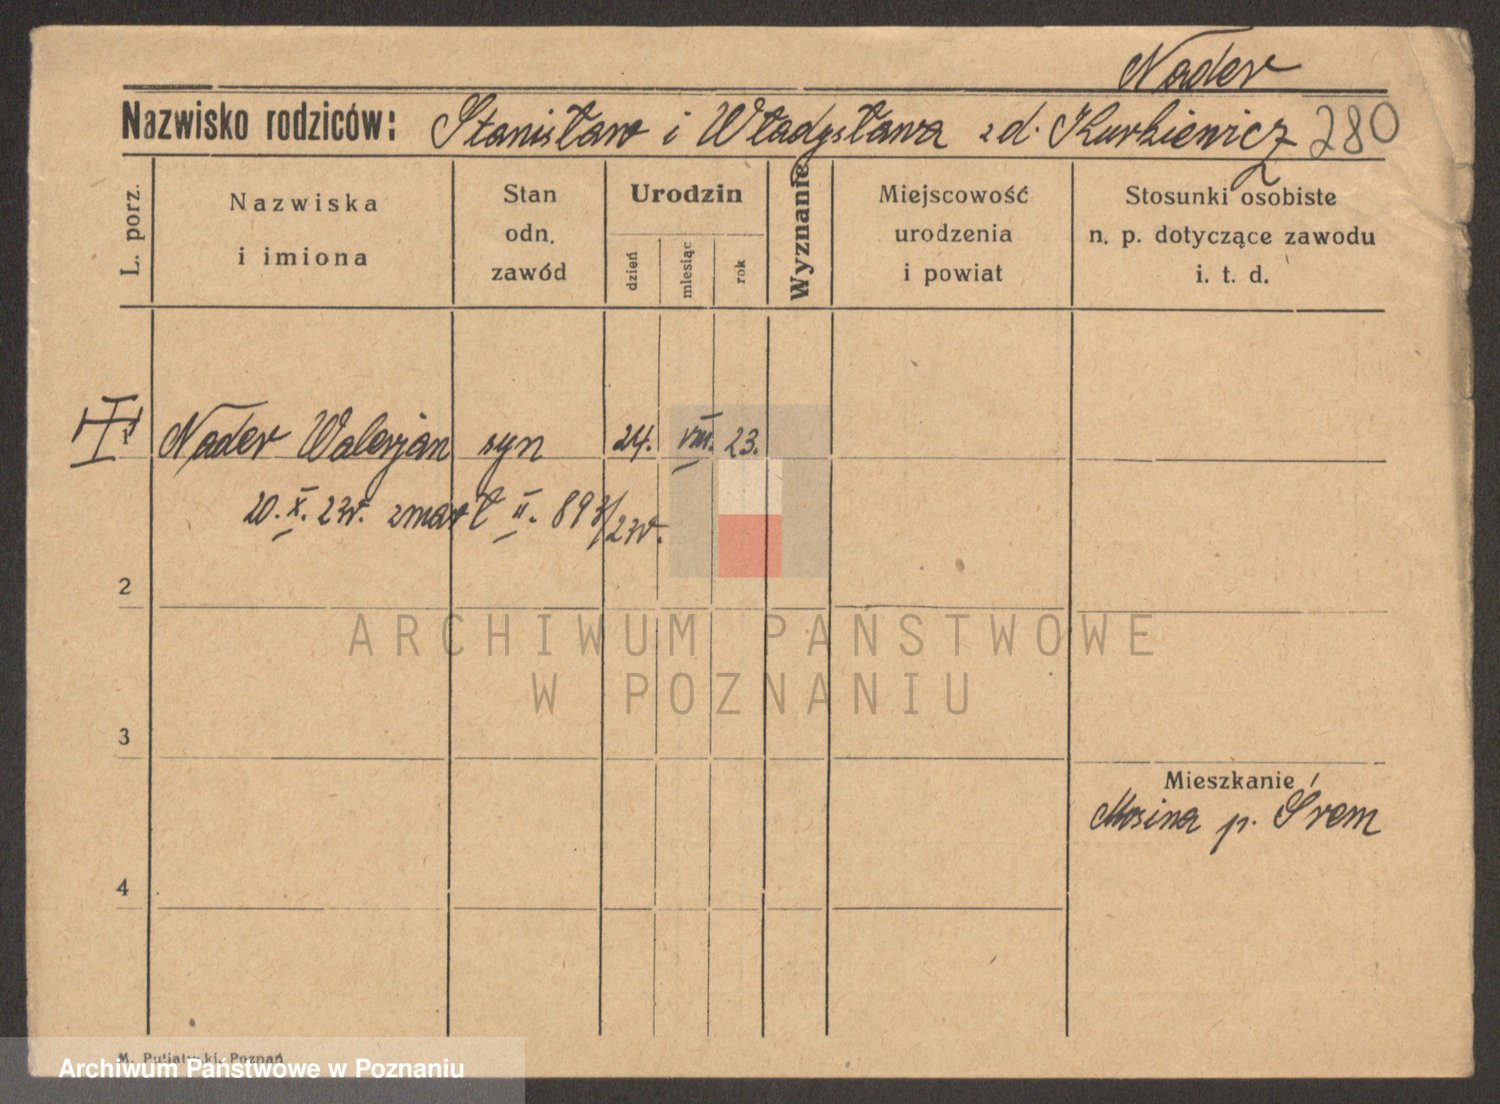 Nader
Nazwisko rodziców: Stanisław i Władysława zd. Kurkiewicz 280
L. porz.
Nazwiska
i imiona
Stan
odn.
zawód
Urodzin
dzień
miesiąc
rok
Wyznanie
Miejscowość
urodzenia
i powiat
Stosunki osobiste
n. p. dotyczące zawodu
i. t. d.
1 Nader Walerjan syn 24. VIII. 23.
20. X. 23r. zmarł II. 893/23r.
2
ARCHIWUM PAŃSTWOWE
W POZNANIU
3
Mieszkanie
Mosina p. Śrem
4
M. Putiatycki, Poznań
Archiwum Państwowe w Poznaniu